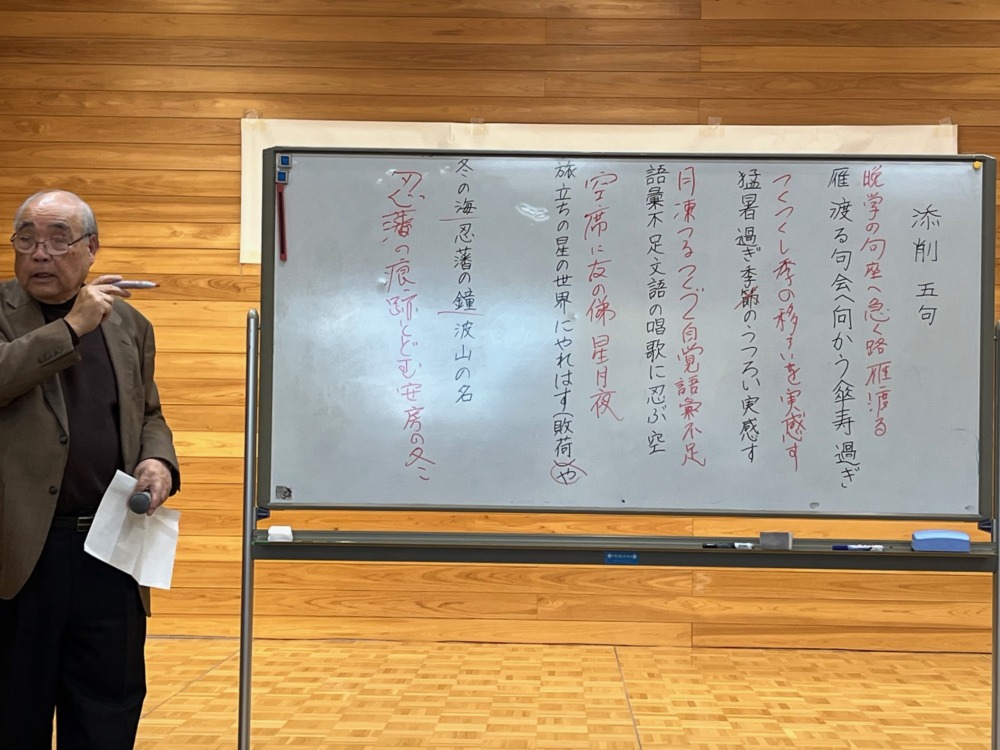 添削 五句
晩学の句座へ急ぐ路雁渡る
雁渡る句会へ向かう傘寿過ぎ
つくつくし季の移ろいを実感す
猛暑過ぎ季節のうつろい実感す
月凍つるつくづく自覚語彙不足
語彙不足文語の唱歌に忍ぶ空
空席に友の俤星月夜
旅立ちの星の世界にやれはす(敗荷)や
冬の海忍藩の鐘波山の名
忍藩の痕跡とどむ安房の冬